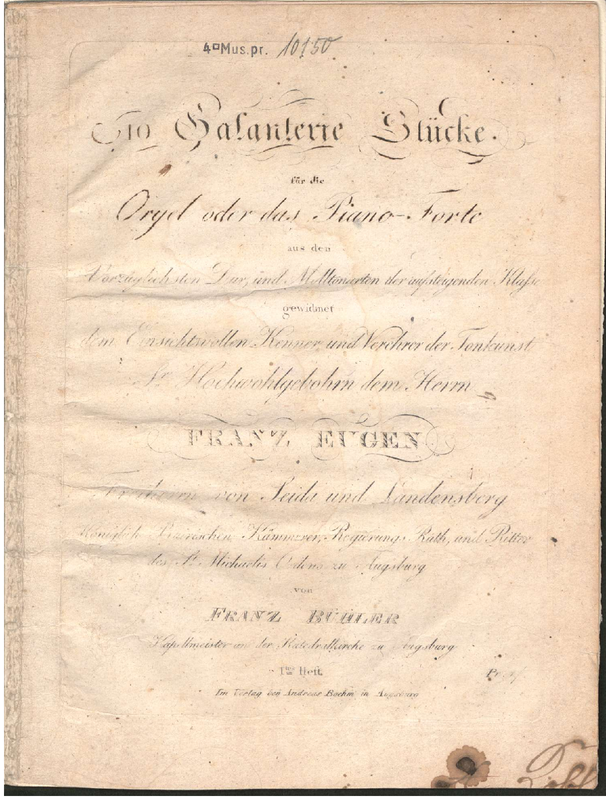 4° Mus.pr. 10150
10 Galanterie Stücke.
für die
Orgel oder das Piano-Forte
aus den
Vorzüglichsten Dur, und Molltonarten der aufsteigenden Klasse
gewidmet
dem Einsichtsvollen Kenner und Verehrer der Tonkunst
Sr. Hochwohlgebohrn dem Herrn
FRANZ EUGEN
Freiherrn von Seida und Landensberg
Königlich Baierschen Kämmerer, Regierungs Rath, und Ritter
des St. Michaelis Ordens zu Augsburg
von
FRANZ BÜHLER
Kapellmeister an der Katedralkirche zu Augsburg
Heft.
Im Verlag bey Andreas Boehm in Augsburg